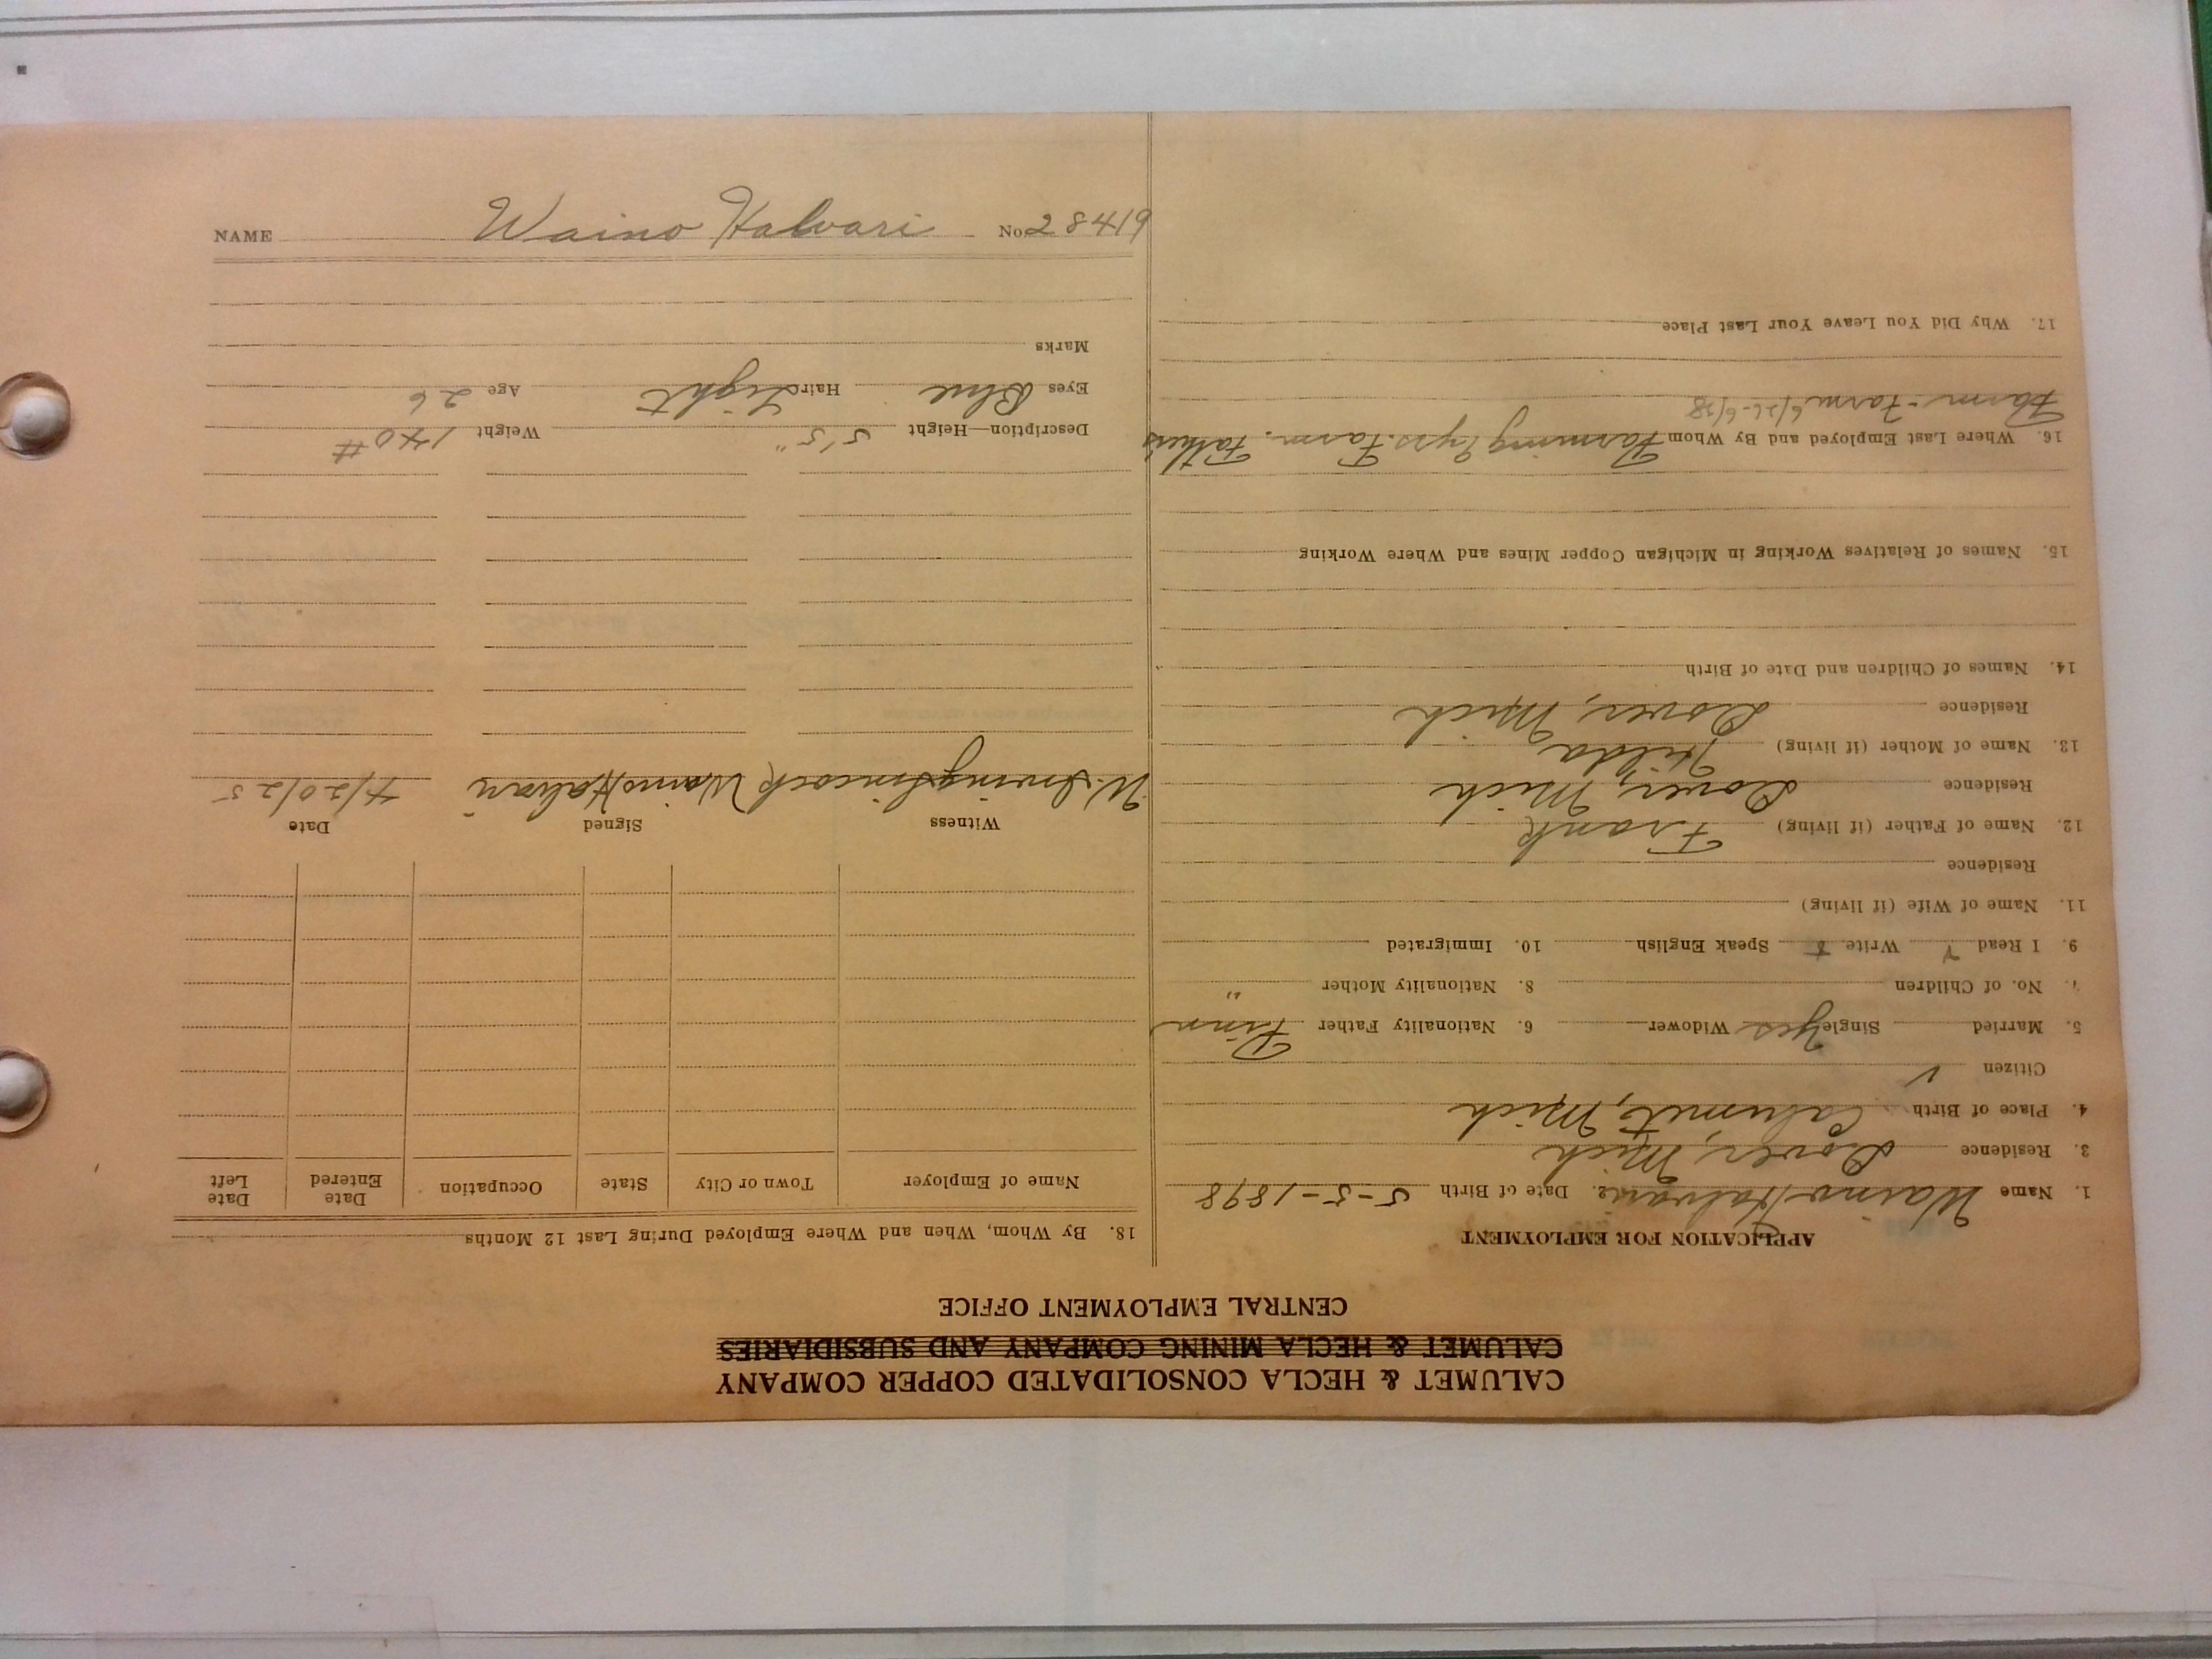 CALUMET & HECLA CONSOLIDATED COPPER COMPANY
CALUMET & HECLA MINING COMPANY AND SUBSIDIARIES
CENTRAL EMPLOYMENT OFFICE
APPLICATION FOR EMPLOYMENT
1. Name Waino Halvari 2. Date of Birth 5-5-1898
3. Residence Dover, Mich
4. Place of Birth Calumet, Mich
Citizen ✓
5. Married Single Yes Widower 6. Nationality Father Finn
7. No. of Children 8. Nationality Mother "
9. I Read Y Write Y Speak English 10. Immigrated
11. Name of Wife (if living)
Residence
12. Name of Father (if living) Frank
Residence Dover, Mich
13. Name of Mother (if living) Hilda
Residence Dover, Mich
14. Names of Children and Date of Birth
15. Names of Relatives Working in Michigan Copper Mines and Where Working
16. Where Last Employed and By Whom Farming yrs. Farm. Father's
Farm - Farm
17. Why Did You Leave Your Last Place
18. By Whom, When and Where Employed During Last 12 Months
Name of Employer Town or City State Occupation Date Entered Date Left
Witness Signed Date
W. Irving Waino Halvari 4/20/25
Description—Height 5'5" Weight 140#
Eyes Blue Hair Light Age 26
Marks
NAME Waino Halvari No. 28419